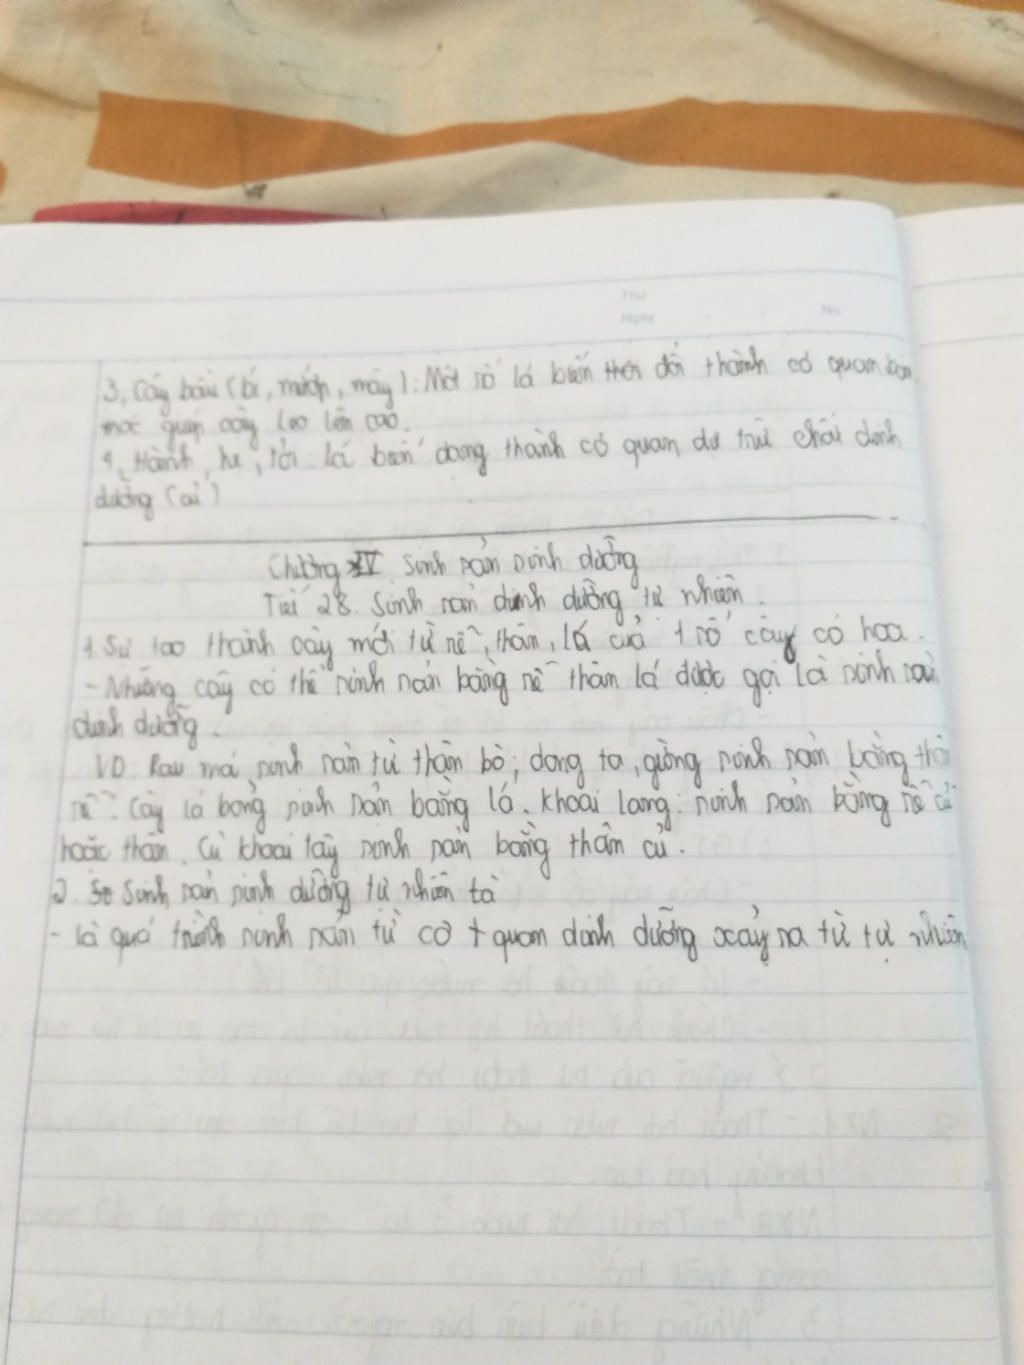 Thứ
Ngày
No
3, Cây bầu (bí, mướp, mây): Một số lá biến đổi thành cơ quan bám
móc giúp cây leo lên cao.
4, Hành, hẹ, tỏi: lá biến dạng thành cơ quan dự trữ chất dinh
dưỡng (củ)
Chương IV Sinh sản sinh dưỡng
Tiết 28. Sinh sản dinh dưỡng tự nhiên.
1 Sự tạo thành cây mới từ rễ, thân, lá của 1 số cây có hoa.
- Những cây có thể sinh sản bằng rễ thân lá được gọi là sinh sản
dinh dưỡng.
VD. Rau má sinh sản từ thân bò; dong ta, giềng sinh sản bằng thân
rễ. Cây lá bỏng sinh sản bằng lá. Khoai lang: sinh sản bằng rễ củ
hoặc thân. Củ khoai tây sinh sản bằng thân củ.
2. Sinh sản sinh dưỡng tự nhiên là
- là quá trình sinh sản từ cơ quan dinh dưỡng xảy ra từ tự nhiên